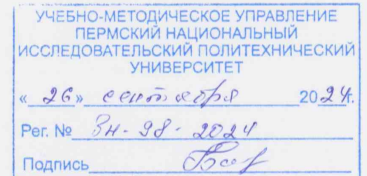 УЧЕБНО-МЕТОДИЧЕСКОЕ УПРАВЛЕНИЕ
ПЕРМСКИЙ НАЦИОНАЛЬНЫЙ
ИССЛЕДОВАТЕЛЬСКИЙ ПОЛИТЕХНИЧЕСКИЙ
УНИВЕРСИТЕТ
«26» сентября 2024г.
Рег. № ЗН-98-2024
Подпись